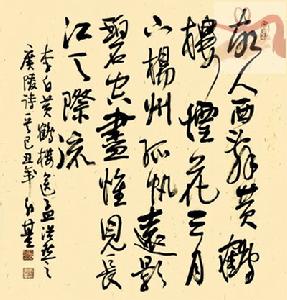 故人西辞黄鶴
樓煙花三月
下楊州孤帆遠影
碧空盡惟見長
江天際流
李白黄鶴樓送孟浩然之
廣陵诗己丑年